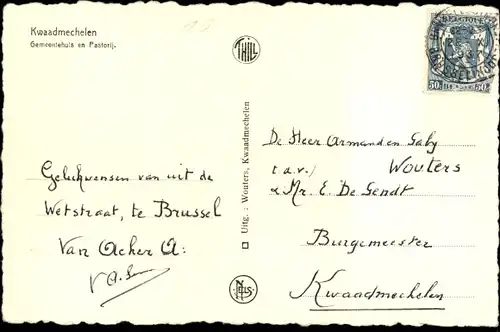 Kwaadmechelen
Gemeentehuis en Pastorij.
THILL
BELGIQUE
50c
50c
De Heer Armand en Gaby
Wouters
t.a.v./
& Mr. E. De Gendt
Burgemeester
Kwaadmechelen
Gelukwensen van uit de
Wetstraat, te Brussel
Van Acker A:
Uitg. : Wouters, Kwaadmechelen
NELS